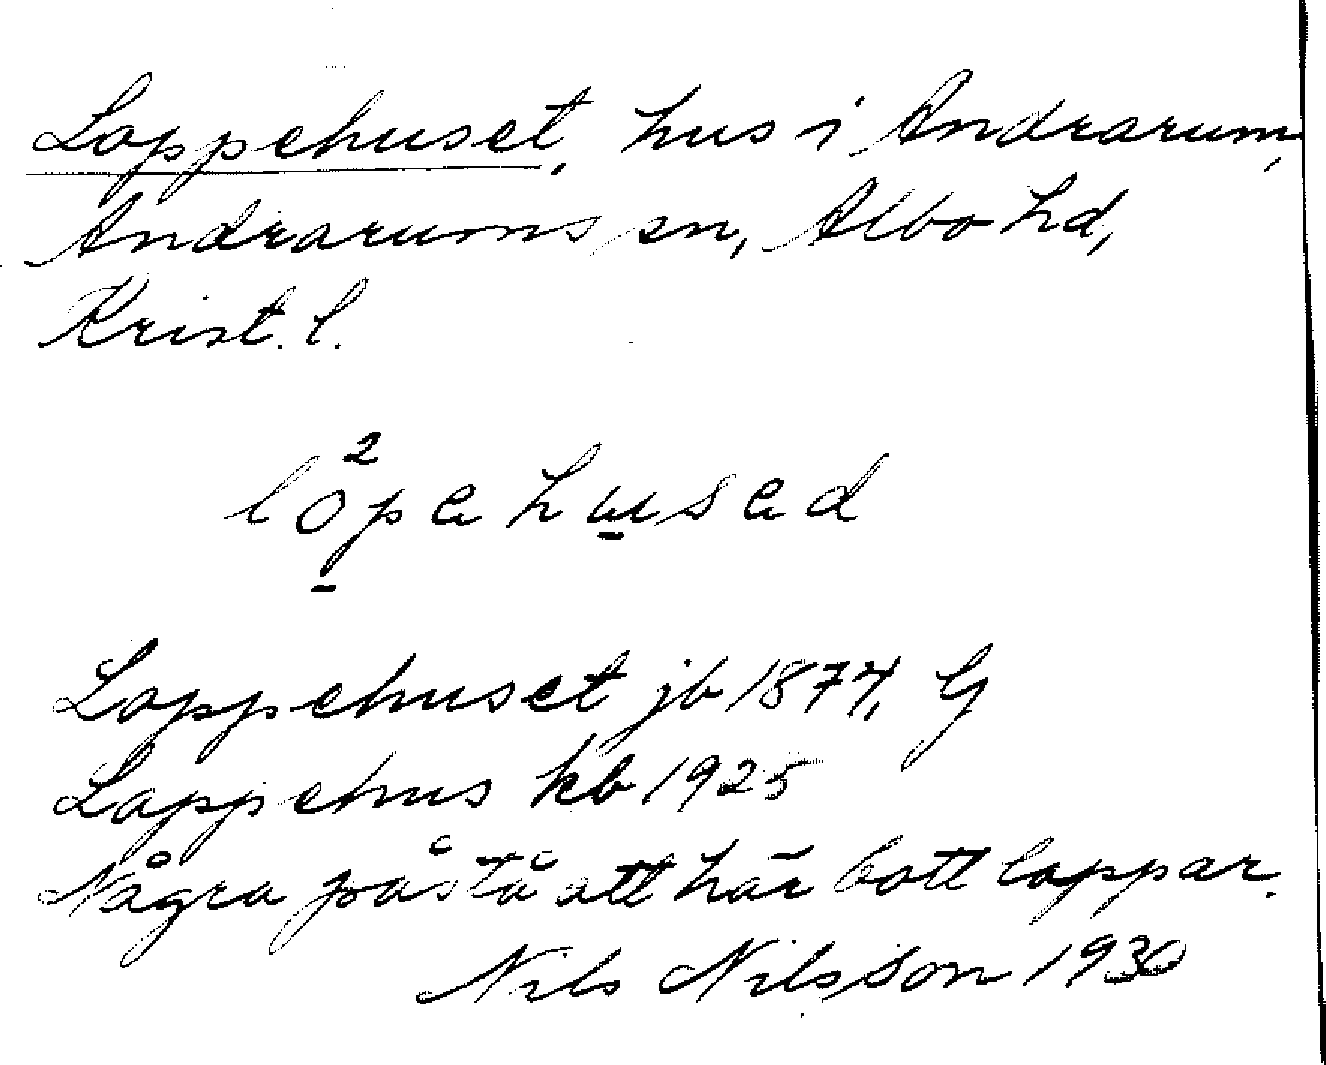 Loppehuset, hus i Andrarum,
Andrarums sn, Albo hd,
Krist. l.
2
lopehused
Loppehuset jb 1874, G
Lappehus kb 1925
Några påstå att här bott lappar.
Nils Nilsson 1930